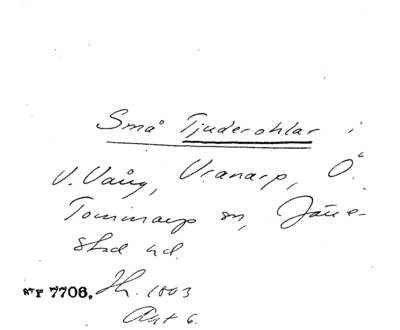 Små Tjuderohlar i
V. Vång, Vranarp, Ö.
Tommarp sn, Järre-
stad hd.
RTP 7706. Jh. 1803
Akt 6.